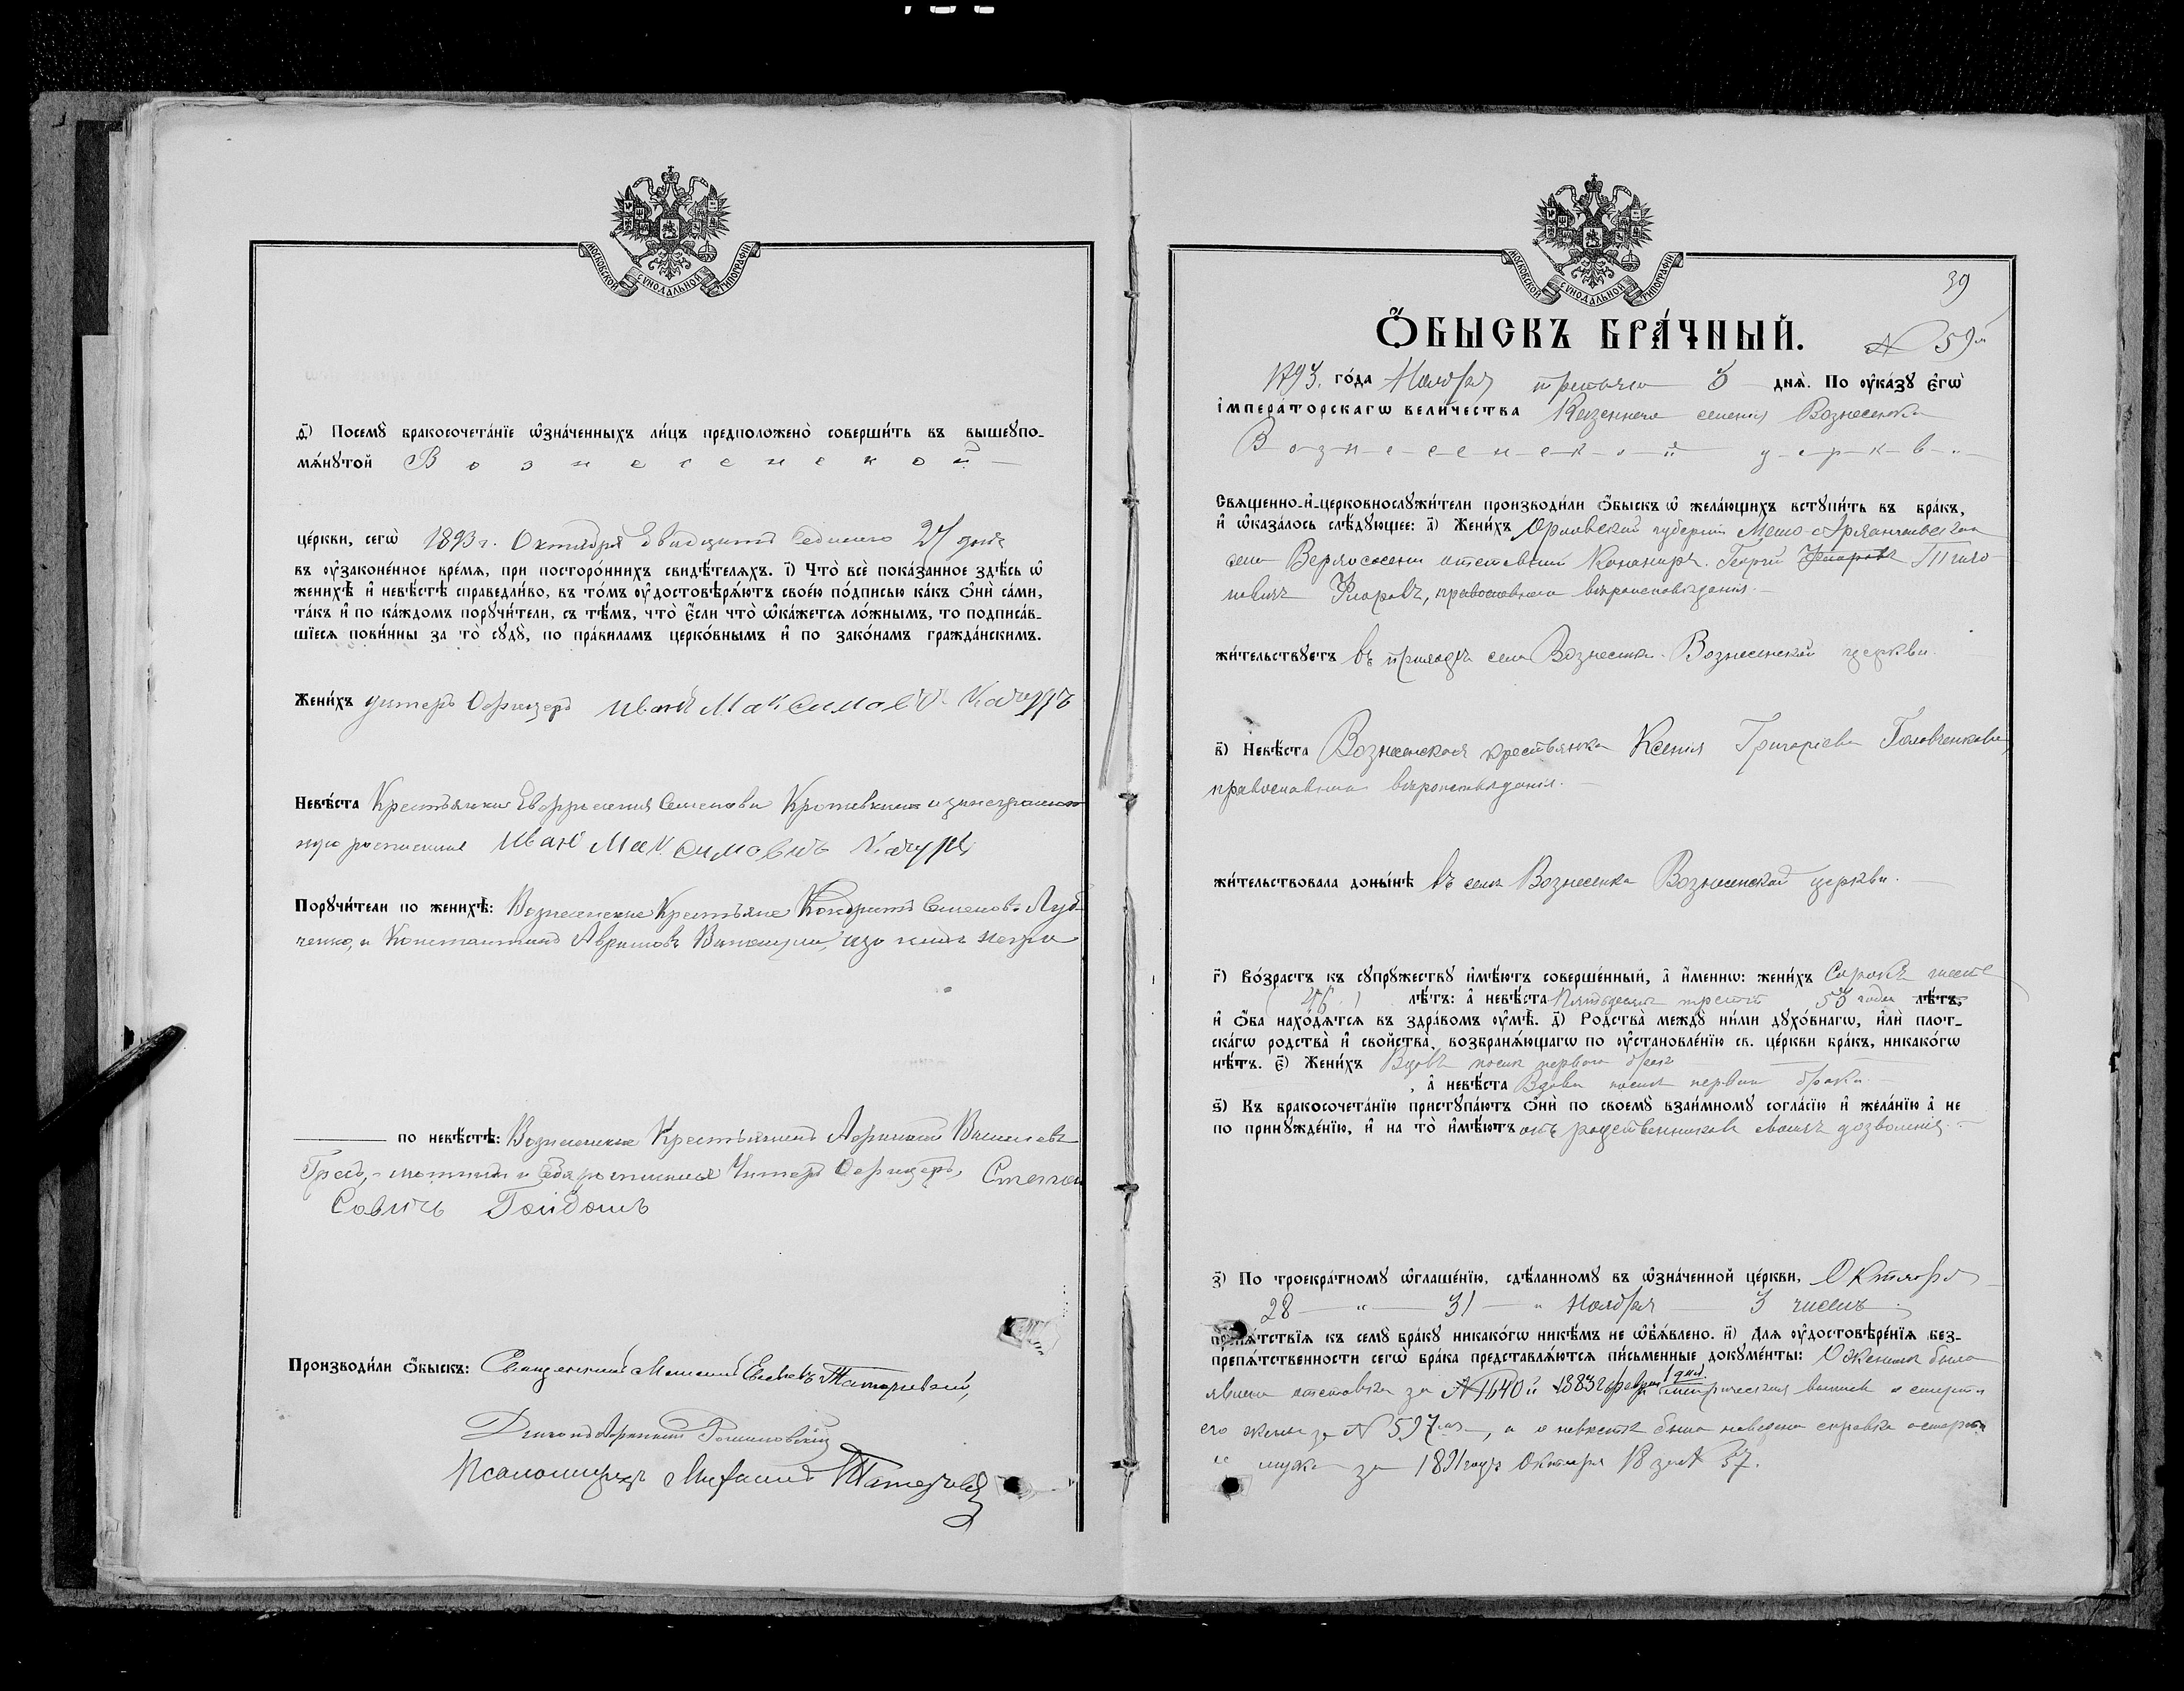 МОСКОВСКОЙ СѴНОДАЛЬНОЙ ТИПОГРАФІИ
д҃) Посемꙋ̀ бракосочета́нїе ѡ҆зна́ченныхъ ли́цъ предположено̀ соверши́ть въ вышеꙋпо-
мѧ́нꙋтой Вознесенской
це́ркви, сегѡ̀ 1893 г. Октября двадцать седьмого 27 дня
въ ᲂу҆зако́ненное вре́мѧ, при посторо́ннихъ свидѣ́телѧхъ. і҃) Что̀ всѐ пока́занное здѣ́сь ѡ҆
женихѣ̀ и҆ невѣ́стѣ справедли́во, въ то́мъ ᲂу҆достовѣрѧ́ютъ свое́ю по́дписью ка́къ ѻ҆нѝ са́ми,
та́къ и҆ по ка́ждомъ порꙋчи́тели, съ тѣ́мъ, что̀ є҆́сли что̀ ѡ҆ка́жетсѧ ло́жнымъ, то подписа́в-
шїесѧ пови́нны за то̀ сꙋдꙋ̀, по пра́виламъ церко́внымъ и҆ по зако́намъ гражда́нскимъ.
Жени́хъ унтеръ Офицеръ Иванъ Максимовъ Качуръ
Невѣ́ста Крестьянка Евфросинія Семенова
Иванъ Максимовичъ Качуръ
Порꙋчи́тели по женихѣ̀: Вознесенские Крестьяне Кондратъ Семеновъ
ченко, и Константинъ Аврамовъ
по невѣ́стѣ: Вознесенские Крестьянинъ Афанасій Васильевъ
Унтеръ Офицеръ, Степанъ
Савичъ Гайдашъ
Производи́ли ѻ҆́быскъ: Священникъ
Діаконъ Афанасій
Псаломщикъ Михаилъ
МОСКОВСКОЙ СѴНОДАЛЬНОЙ ТИПОГРАФІИ
39
Ѻ҆́БЫСКЪ БРА́ЧНЫЙ.
N 59й
1893. го́да Ноября третьяго 3 днѧ̀. По ᲂу҆ка́зꙋ є҆гѡ̀
і҆мпера́торскагѡ вели́чества Казеннаго селенія Вознесенка
Вознесенской церкви
Свѧще́нно-и҆-церковнослꙋжи́тели производи́ли ѻ҆́быскъ ѡ҆ жела́ющихъ встꙋпи́ть въ бра́къ,
и҆ ѡ҆каза́лось слѣ́дꙋющее: а҃) Жени́хъ Орловской губерніи
села отставной Канониръ Георгій
Фларовъ, православнаго вѣроисповѣданія.
жи́тельствꙋетъ въ приходѣ села Вознесенка Вознесенской церкви.
в҃) Невѣ́ста Вознесенская крестьянка Ксенія Григоріева Головченкова,
православнаго вѣроисповѣданія.
жи́тельствовала доны́нѣ въ селѣ Вознесенка Вознесенской церкви.
г҃) Во́зрастъ къ сꙋпрꙋ́жествꙋ и҆мѣ́ютъ соверше́нный, а҆ и҆́меннѡ: жени́хъ Сорокъ шесть
46 лѣ́тъ: а҆ невѣ́ста Пятьдесятъ три 53 года лѣ́тъ,
и҆ ѻ҆́ба нахо́дѧтсѧ въ здра́вомъ ᲂу҆мѣ̀. д҃) Родства̀ междꙋ̀ ни́ми дꙋхо́внагѡ, и҆лѝ пло́т-
скагѡ родства̀ и҆ сво́йства̀, возбранѧ́ющагѡ по ᲂу҆становле́нїю св. це́ркви бра́къ, никако́гѡ
нѣ́тъ. є҃) Жени́хъ Вдовъ послѣ перваго брака
, а҆ невѣ́ста Вдова послѣ перваго брака.
ѕ҃) Къ бракосочета́нїю пристꙋпа́ютъ ѻ҆нѝ по своемꙋ̀ взаи́мномꙋ согла́сїю и҆ жела́нїю а҆ не
по принꙋжде́нїю, и҆ на то̀ и҆мѣ́ютъ отъ родственниковъ своихъ дозволеніе.
з҃) По троекра́тномꙋ ѡ҆глаше́нїю, сдѣ́ланномꙋ въ ѡ҆зна́ченной це́ркви, Октября
28 " 31 " Ноября 3 чиселъ
препѧ́тствїѧ къ семꙋ̀ бра́кꙋ никако́гѡ никѣ́мъ не ѡ҆б̾ѧ́влено. и҃) Длѧ ᲂу҆достовѣре́нїѧ без-
препѧ́тственности сегѡ̀ бра́ка представлѧ́ютсѧ пи́сьменные докꙋме́нты: О женихѣ была
явлена отставка за N 1640й 1883 г. февраля 1 дня. метрическая выпись о смерти
его жены за N 597, а о невѣстѣ была наведена справка о смерти
ее мужа за 1891 годъ Октября 18 за N 37.